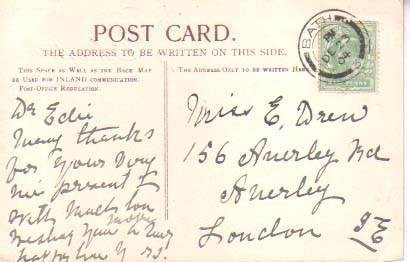 POST CARD.
THE ADDRESS TO BE WRITTEN ON THIS SIDE.
THIS SPACE AS WELL AS THE BACK MAY
BE USED FOR INLAND COMMUNICATION.
POST-OFFICE REGULATION.
THE ADDRESS ONLY TO BE WRITTEN HERE
BATH
Dr Edie
Many thanks
for your very
nice present
with much love
wishing you
Miss E. Drew
156 Anerley Rd
Anerley
London
SE